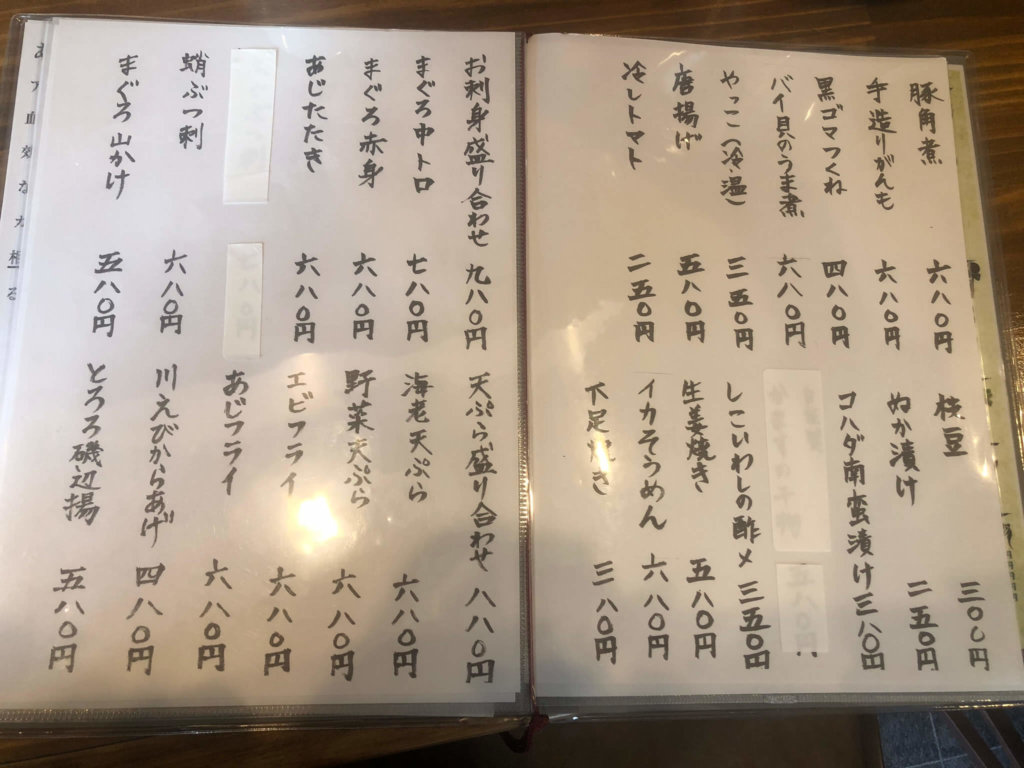 豚角煮 六八〇円
手造りがんも 六八〇円
黒ゴマつくね 四八〇円
バイ貝のうま煮 六八〇円
やっこ(冷、温) 三五〇円
唐揚げ 五八〇円
冷しトマト 二五〇円
枝豆 三〇〇円
ぬか漬け 二五〇円
コハダ南蛮漬け 三八〇円
しこいわしの酢〆 三五〇円
生姜焼き 五八〇円
イカそうめん 六八〇円
下足焼き 三八〇円
お刺身盛り合わせ 九八〇円
まぐろ中トロ 七八〇円
まぐろ赤身 六八〇円
あじたたき 六八〇円
蛸ぶつ刺 六八〇円
まぐろ山かけ 五八〇円
天ぷら盛り合わせ 八八〇円
海老天ぷら 六八〇円
野菜天ぷら 六八〇円
エビフライ 六八〇円
あじフライ 六八〇円
川えびからあげ 四八〇円
とろろ磯辺揚 五八〇円